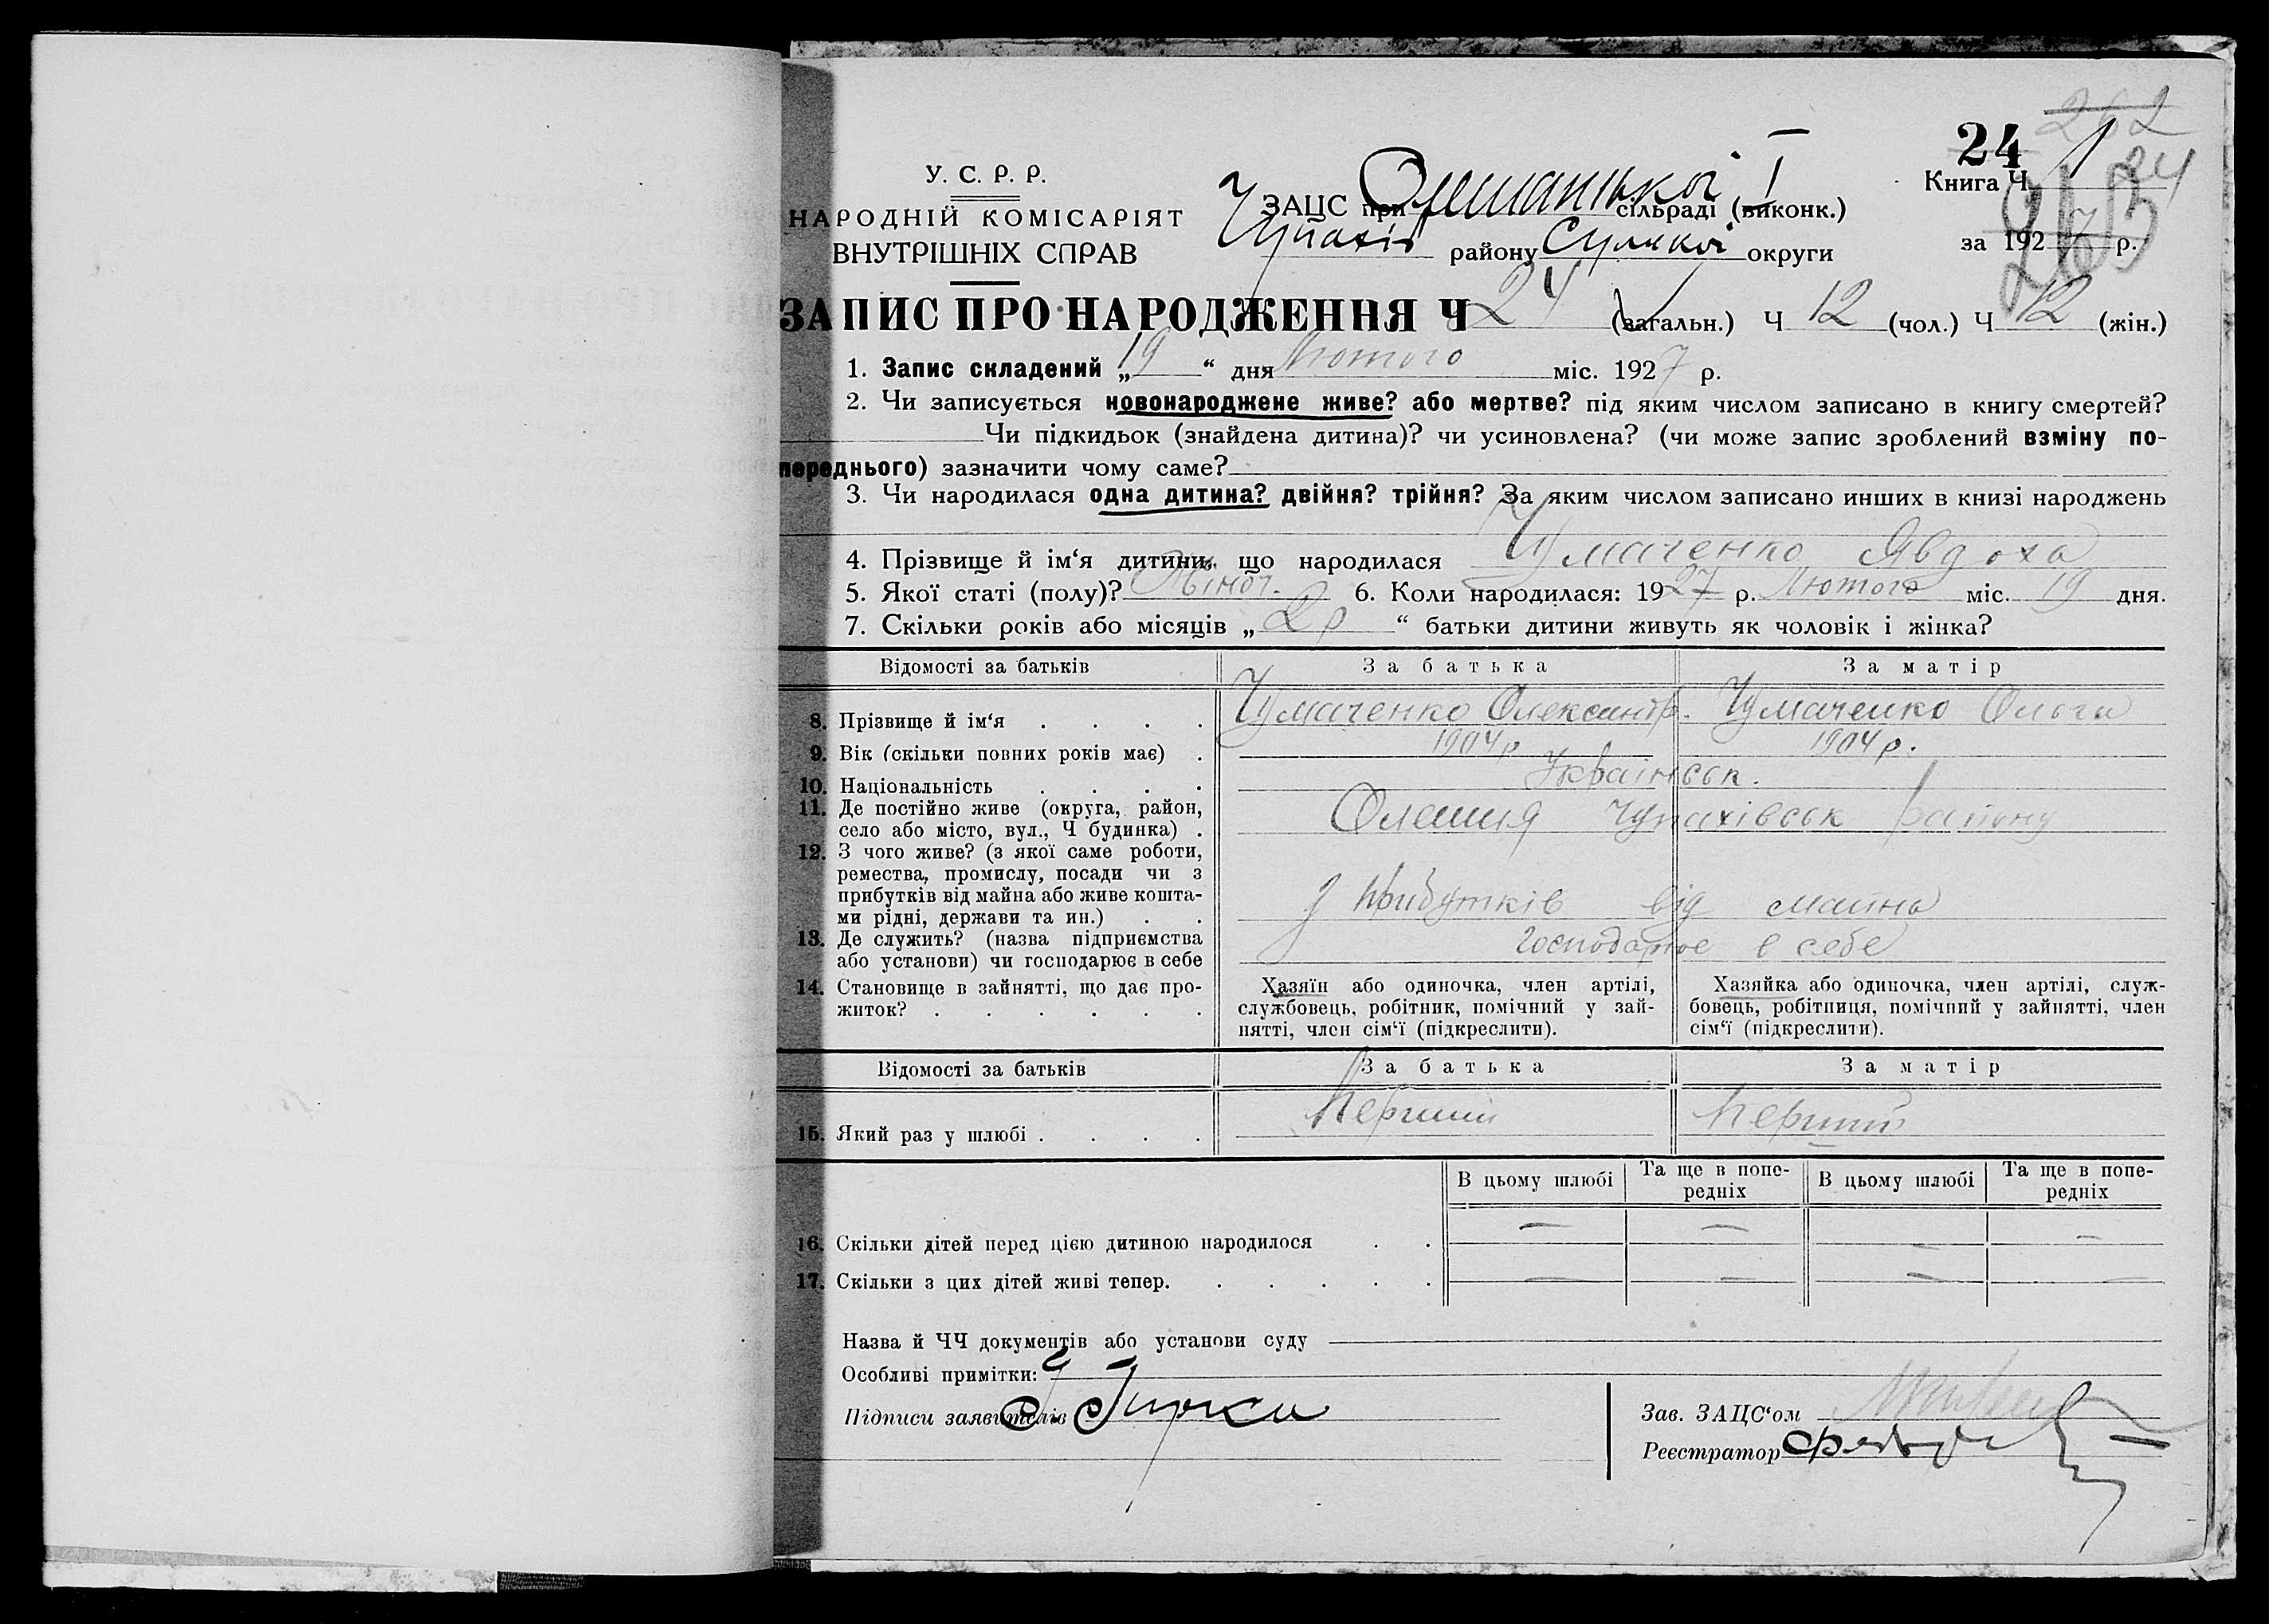 262
24
24
263
У. С. Р. Р.
НАРОДНІЙ КОМІСАРІЯТ
ВНУТРІШНІХ СПРАВ
ЗАЦС при Олешанській І сільраді (виконк.)
Чупахів району Сумської округи
Книга Ч. 1
за 1927 р.
ЗАПИС ПРО НАРОДЖЕННЯ Ч 24 (загальн.) Ч 12 (чол.) Ч 12 (жін.)
1. Запис складений „ 19 “ дня Лютого міс. 1927 р.
2. Чи записується новонароджене живе? або мертве? під яким числом записано в книгу смертей?
Чи підкидьок (знайдена дитина)? чи усиновлена? (чи може запис зроблений взміну по-
переднього) зазначити чому саме?
3. Чи народилася одна дитина? двійня? трійня? За яким числом записано инших в книзі народжень
4. Прізвище й ім‘я дитини, що народилася Чумаченко Явдоха
5. Якої статі (полу)? Жіноч. 6. Коли народилася: 1927 р. Лютого міс. 19 дня.
7. Скільки років або місяців „ 2 р “ батьки дитини живуть як чоловік і жінка?
Відомості за батьків За батька За матір
8. Прізвище й ім‘я . . . . Чумаченко Олександр. Чумаченко Ольга
9. Вік (скільки повних років має) . 1904 р 1904 р.
10. Національність . . . . Українськ.
11. Де постійно живе (округа, район,
село або місто, вул., Ч будинка) . Олешня Чупахівськ району
12. З чого живе? (з якої саме роботи,
ремества, промислу, посади чи з
прибутків від майна або живе кошта-
ми рідні, держави та ин.) . . З прибутків від майна
13. Де служить? (назва підприємства
або установи) чи господарює в себе господарює в себе
14. Становище в зайнятті, що дає про-
житок? . . . . . .
Хазяїн або одиночка, член артілі,
службовець, робітник, помічний у зай-
нятті, член сім‘ї (підкреслити).
Хазяйка або одиночка, член артілі, служ-
бовець, робітниця, помічний у зайнятті, член
сім‘ї (підкреслити).
Відомості за батьків За батька За матір
15. Який раз у шлюбі . . . . Перший Перший
В цьому шлюбі Та ще в попе-
редніх В цьому шлюбі Та ще в попе-
редніх
16. Скільки дітей перед цією дитиною народилося . . — — — —
17. Скільки з цих дітей живі тепер. . . . . . — — — —
Назва й ЧЧ документів або установи суду
Особливі примітки:
Підписи заявителів
Зав. ЗАЦС‘ом
Реєстратор